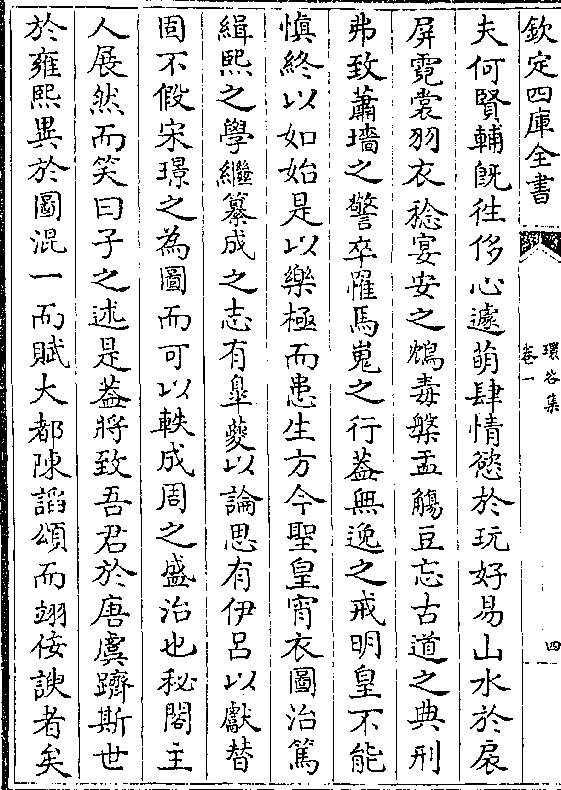 欽定四庫全書
環谷集
卷一
四
夫何賢輔既往侈心遽萌肆情慾於玩好易山水於扆
屏霓裳羽衣稔宴安之鴆毒槃盂觴豆忘古道之典刑
弗致蕭墻之警卒罹馬嵬之行葢無逸之戒明皇不能
慎終以如始是以樂極而患生方今聖皇宵衣圖治篤
緝熙之學繼纂成之志有臯夔以論思有伊呂以獻替
固不假宋璟之為圖而可以軼成周之盛治也秘閣主
人展然而笑曰子之述是葢將致吾君於唐虞躋斯世
於雍熙異於圖混一而賦大都陳謟頌而翊佞諛者矣